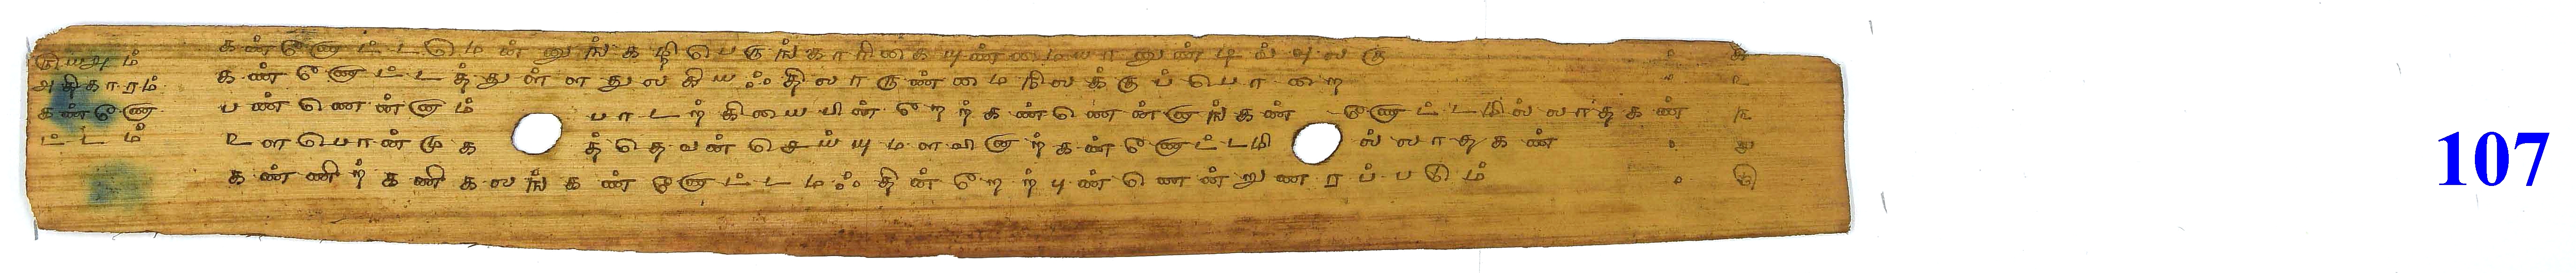 ௫௰௮ம் கண்ணோட்டமென்னுங்கழிபெருங்காரிகையுண்மையானுண்டிவ்வுலகு ௧
அதிகாரம் கண்ணோட்டத்துள்ளதுலகியஃதிலாருண்மைநிலக்குப்பொறை ௨
கண்ணோ பண்ணென்னாம் பாடற்கியையின்றேற்கண்ணென்னாங்கண் ணோட்டமில்லாதகண் ௩
ட்டம் உளபொன்முக த்தெவன்செய்யுமளவினாற்கண்ணோட்டமி ல்லாதகண் ௪
கண்ணிற்கணிகலங்கண்ணோட்டமஃதின்றேற்புண்ணென்றுணரப்படும் ௫
107